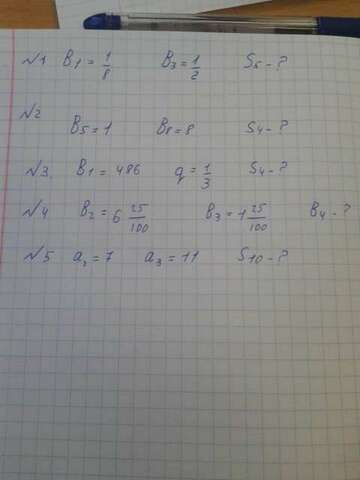 №1 B₁ = 1/8 B₃ = 1/2 S₅ - ?
№2
B₅ = 1 B₈ = 8 S₄ - ?
№3. B₁ = 486 q = 1/3 S₄ - ?
№4 B₂ = 6 25/100 B₃ = 1 25/100 B₄ - ?
№5 a₁ = 7 a₃ = 11 S₁₀ - ?